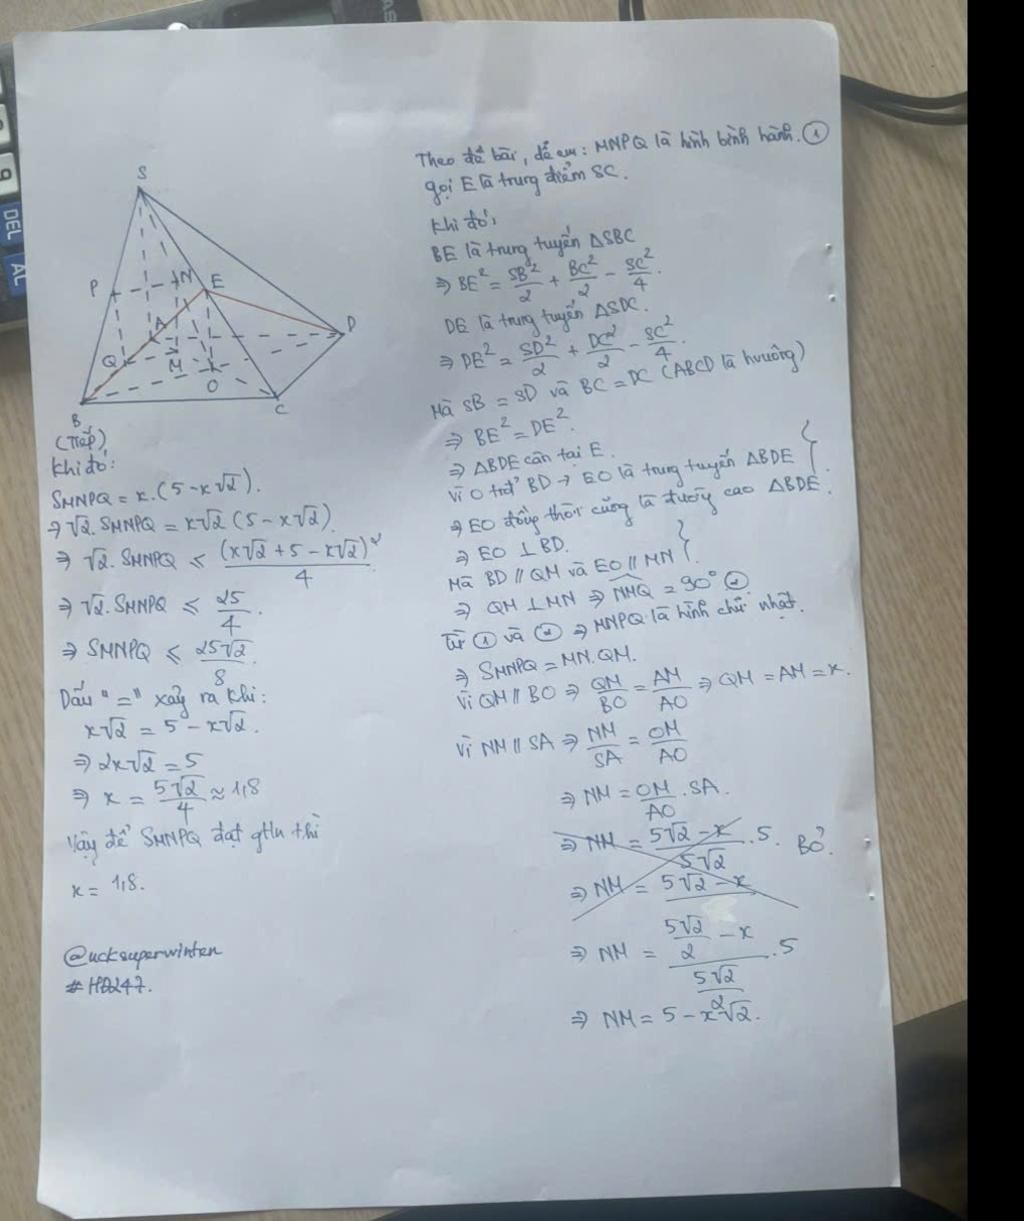 DEL
AC
S
P
N
E
A
D
Q
M
O
B
C
Theo đề bài, dễ cm: MNPQ là hình bình hành. ①
gọi E là trung điểm SC.
Khi đó,
BE là trung tuyến ΔSBC
⇒ BE² = SB²/2 + BC²/2 - SC²/4.
DE là trung tuyến ΔSDC.
⇒ DE² = SD²/2 + DC²/2 - SC²/4.
Mà SB = SD và BC = DC (ABCD là hvuông)
⇒ BE² = DE².
⇒ ΔBDE cân tại E.
Vì O trđ BD → EO là trung tuyến ΔBDE
⇒ EO đồng thời cũng là đường cao ΔBDE.
⇒ EO ⊥ BD.
Mà BD // QM và EO // MN
⇒ QM ⊥ MN ⇒ NMQ = 90° ②
Từ ① và ② ⇒ MNPQ là hình chữ nhật.
⇒ SMNPQ = MN.QM.
Vì QM // BO ⇒ QM/BO = AM/AO ⇒ QM = AM = x.
Vì NM // SA ⇒ NM/SA = OM/AO
⇒ NM = OM/AO . SA.
⇒ NM = (5√2 - x)/5√2 . 5. BỎ.
⇒ NM = 5√2 - x
⇒ NM = (5√2/2 - x)/(5√2/2) . 5
⇒ NM = 5 - x√2.
(Tiếp)
Khi đó:
SMNPQ = x.(5-x√2).
⇒ √2. SMNPQ = x√2 (5 - x√2)
⇒ √2. SMNPQ ≤ (x√2 + 5 - x√2)²/4
⇒ √2. SMNPQ ≤ 25/4.
⇒ SMNPQ ≤ 25√2/8.
Dấu "=" xảy ra khi:
x√2 = 5 - x√2.
⇒ 2x√2 = 5
⇒ x = 5√2/4 ≈ 1,8
Vậy để SMNPQ đạt gtln thì
x = 1,8.
@ucksuperwinten
#HD247.